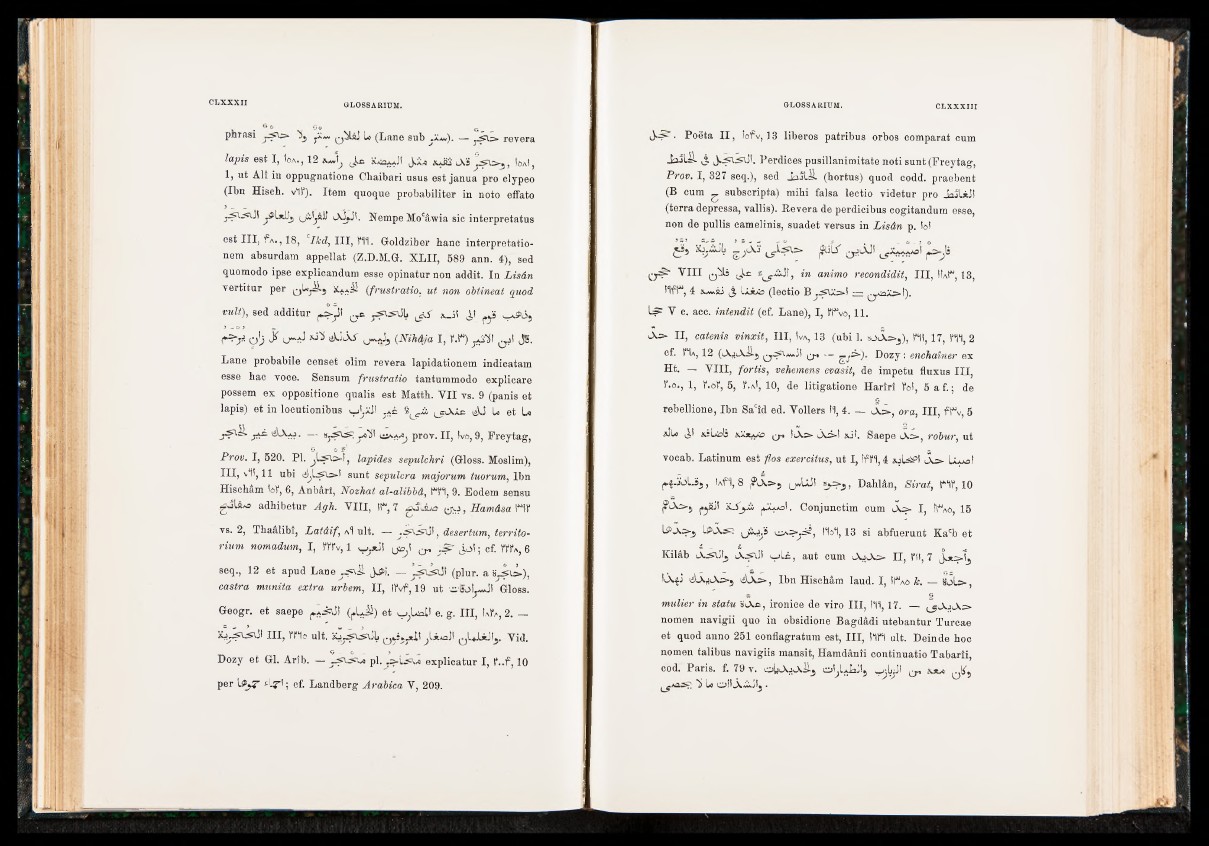 CLXXXII GLOSSARIUM.
phrasi ما لفلان ستر ولا حجر (Lane sub ستر). — حجر revera
lapis est I, ١٥٨٠, 12
1, ut Alî in oppugnatione Chaibari usus est janua pro clypeo
(Ibn Hisch. ٧٦٢). Item quoque probabiliter in noto effato
الولد للفراش وللعاهر الحجر. Nempe Moʿâwia sic interpretatus
est III, ۴٨٠, 18, ʿIkd, III, ٢٩٩. Goldziher hanc interpretatio-
nem absurdam appellat (Z.D.M.G. XLII, 589 ann. 4), sed
quomodo ipse explicandum esse opinatur non addit. In Lisân
vertitur per الخيبة والحرمان (frustratio, ut non obtineat quod
vult), sed additur وذهب قوم الى انه كنى بالحجر عن الرجم
قال ابن الاثير (Nihâja I, ٢٠٣) وليس كذلك لانه ليس كل زان يرجم.
Lane probabile censet olim revera lapidationem indicatam
esse hac voce. Sensum frustratio tantummodo explicare
possem ex oppositione qualis est Matth. VII vs. 9 (panis et
lapis) et in locutionibus ما لك عندى شىء غير التراب et ما
بيدك غير الحجر. — رميت الامر بحجره prov. II, ١٧٥, 9, Freytag,
Prov. I, 520. Pl. أحجار, lapides sepulchri (Gloss. Moslim),
III, ٧٩١, 11 ubi احجارك sunt sepulcra majorum tuorum, Ibn
Hischâm ١٥٢, 6, Anbârî, Nozhat al-alibbâ, ٣٦٩, 9. Eodem sensu
صفائح adhibetur Agh. VIII, ١٣, 7 بين صفائح, Hamâsa ٣٦٢
vs. 2, Thaâlibî, Latâif, ٨٩ ult. — الحجر, desertum, territo-
rium nomadum, I, ٢٢٢٧, 1 ادنى حجر من ارض العرب; cf. ٢٢٢٨, 6
seq., 12 et apud Lane اهل الحجر. — الحجر (plur. a حجرة),
castra munita extra urbem, II, ١٢٧۴, 19 ut Gloss.
Geogr. et saepe المخيم (الخيام) et المضارب e. g. III, ١٨٢٨, 2. —
الحجرية III, ٢٢٦٥ ult. والغلمان الصغار المعروفون بالحجرية. Vid.
Dozy et Gl. Arîb. — محجر pl. محاجر explicatur I, ٢٠٠۴, 10
per احماء حموها; cf. Landberg Arabica V, 209.
GLOSSARIUM. CLXXXIII
حجل. Poëta II, ١٥۴٧, 13 liberos patribus orbos comparat cum
الحجل فى الحائط. Perdices pusillanimitate noti sunt (Freytag,
Prov. I, 327 seq.), sed الحائط (hortus) quod codd. praebent
(B cum ح subscripta) mihi falsa lectio videtur pro الغائط
(terra depressa, vallis). Revera de perdicibus cogitandum esse,
non de pullis camelinis, suadet versus in Lisân p. ١٥١
فارحم أصيبيتى الذين كأنهم حجلى تدرج بالشربة وقع
حجن VIII احتجن الشىء على فلان, in animo recondidit, III, ١١٨٣, 13,
١٩۴٣, 4 ضغنا فى نفسه (lectio B احتجر = احتجن).
حجا V c. acc. intendit (cf. Lane), I, ٢٣٧٥, 11.
حد II, catenis vinxit, III, ١٧٨, 13 (ubi l. وحدده), ٣٩١, 17, ٣٩٩, 2
cf. ٣٩٨, 12 (خرج — من السجن والحديد). Dozy: enchaîner ex
Ht. — VIII, fortis, vehemens evasit, de impetu fluxus III,
٢٠٥٠, 1, ٢٠٥٢, 5, ٢٠٨١, 10, de litigatione Harîrî ٢٥١, 5 a f.; de
rebellione, Ibn Saʿîd ed. Vollers ١٩, 4. — حد, ora, III, ۴٣٧, 5
انه اخذ حدا من ضيعته فاضافه الى ماله. Saepe حد, robur, ut
vocab. Latinum est flos exercitus, ut I, ١۴٢٩, 4 اصبنا حد اصحابه
وقادتهم, ١٨۴٩, 8 وجوه الناس وحدهم, Dahlân, Sirat, ٣٩٢, 10
اصيب شوكة القوم وحدهم. Conjunctim cum جد I, ١٣٨٥, 15
فخرجت قريش بحدها وجدها, ١٩٥٩, 13 si abfuerunt Kaʿb et
Kilâb غاب الحد والجد, aut cum حديد II, ٢١١, 7 واجعل
حدك وحديدك بهذا, Ibn Hischâm laud. I, ١٣٨٥ k. — حادة,
mulier in statu عدة, ironice de viro III, ١٩٩, 17. — حديدى
nomen navigii quo in obsidione Bagdâdi utebantur Turcae
et quod anno 251 conflagratum est, III, ١٩٣٩ ult. Deinde hoc
nomen talibus navigiis mansit, Hamdânii continuatio Tabarîi,
cod. Paris. f. 79 v. وكان معه من الزبازب والطيارات والحديديات
والشذاات ما لا يحصى.